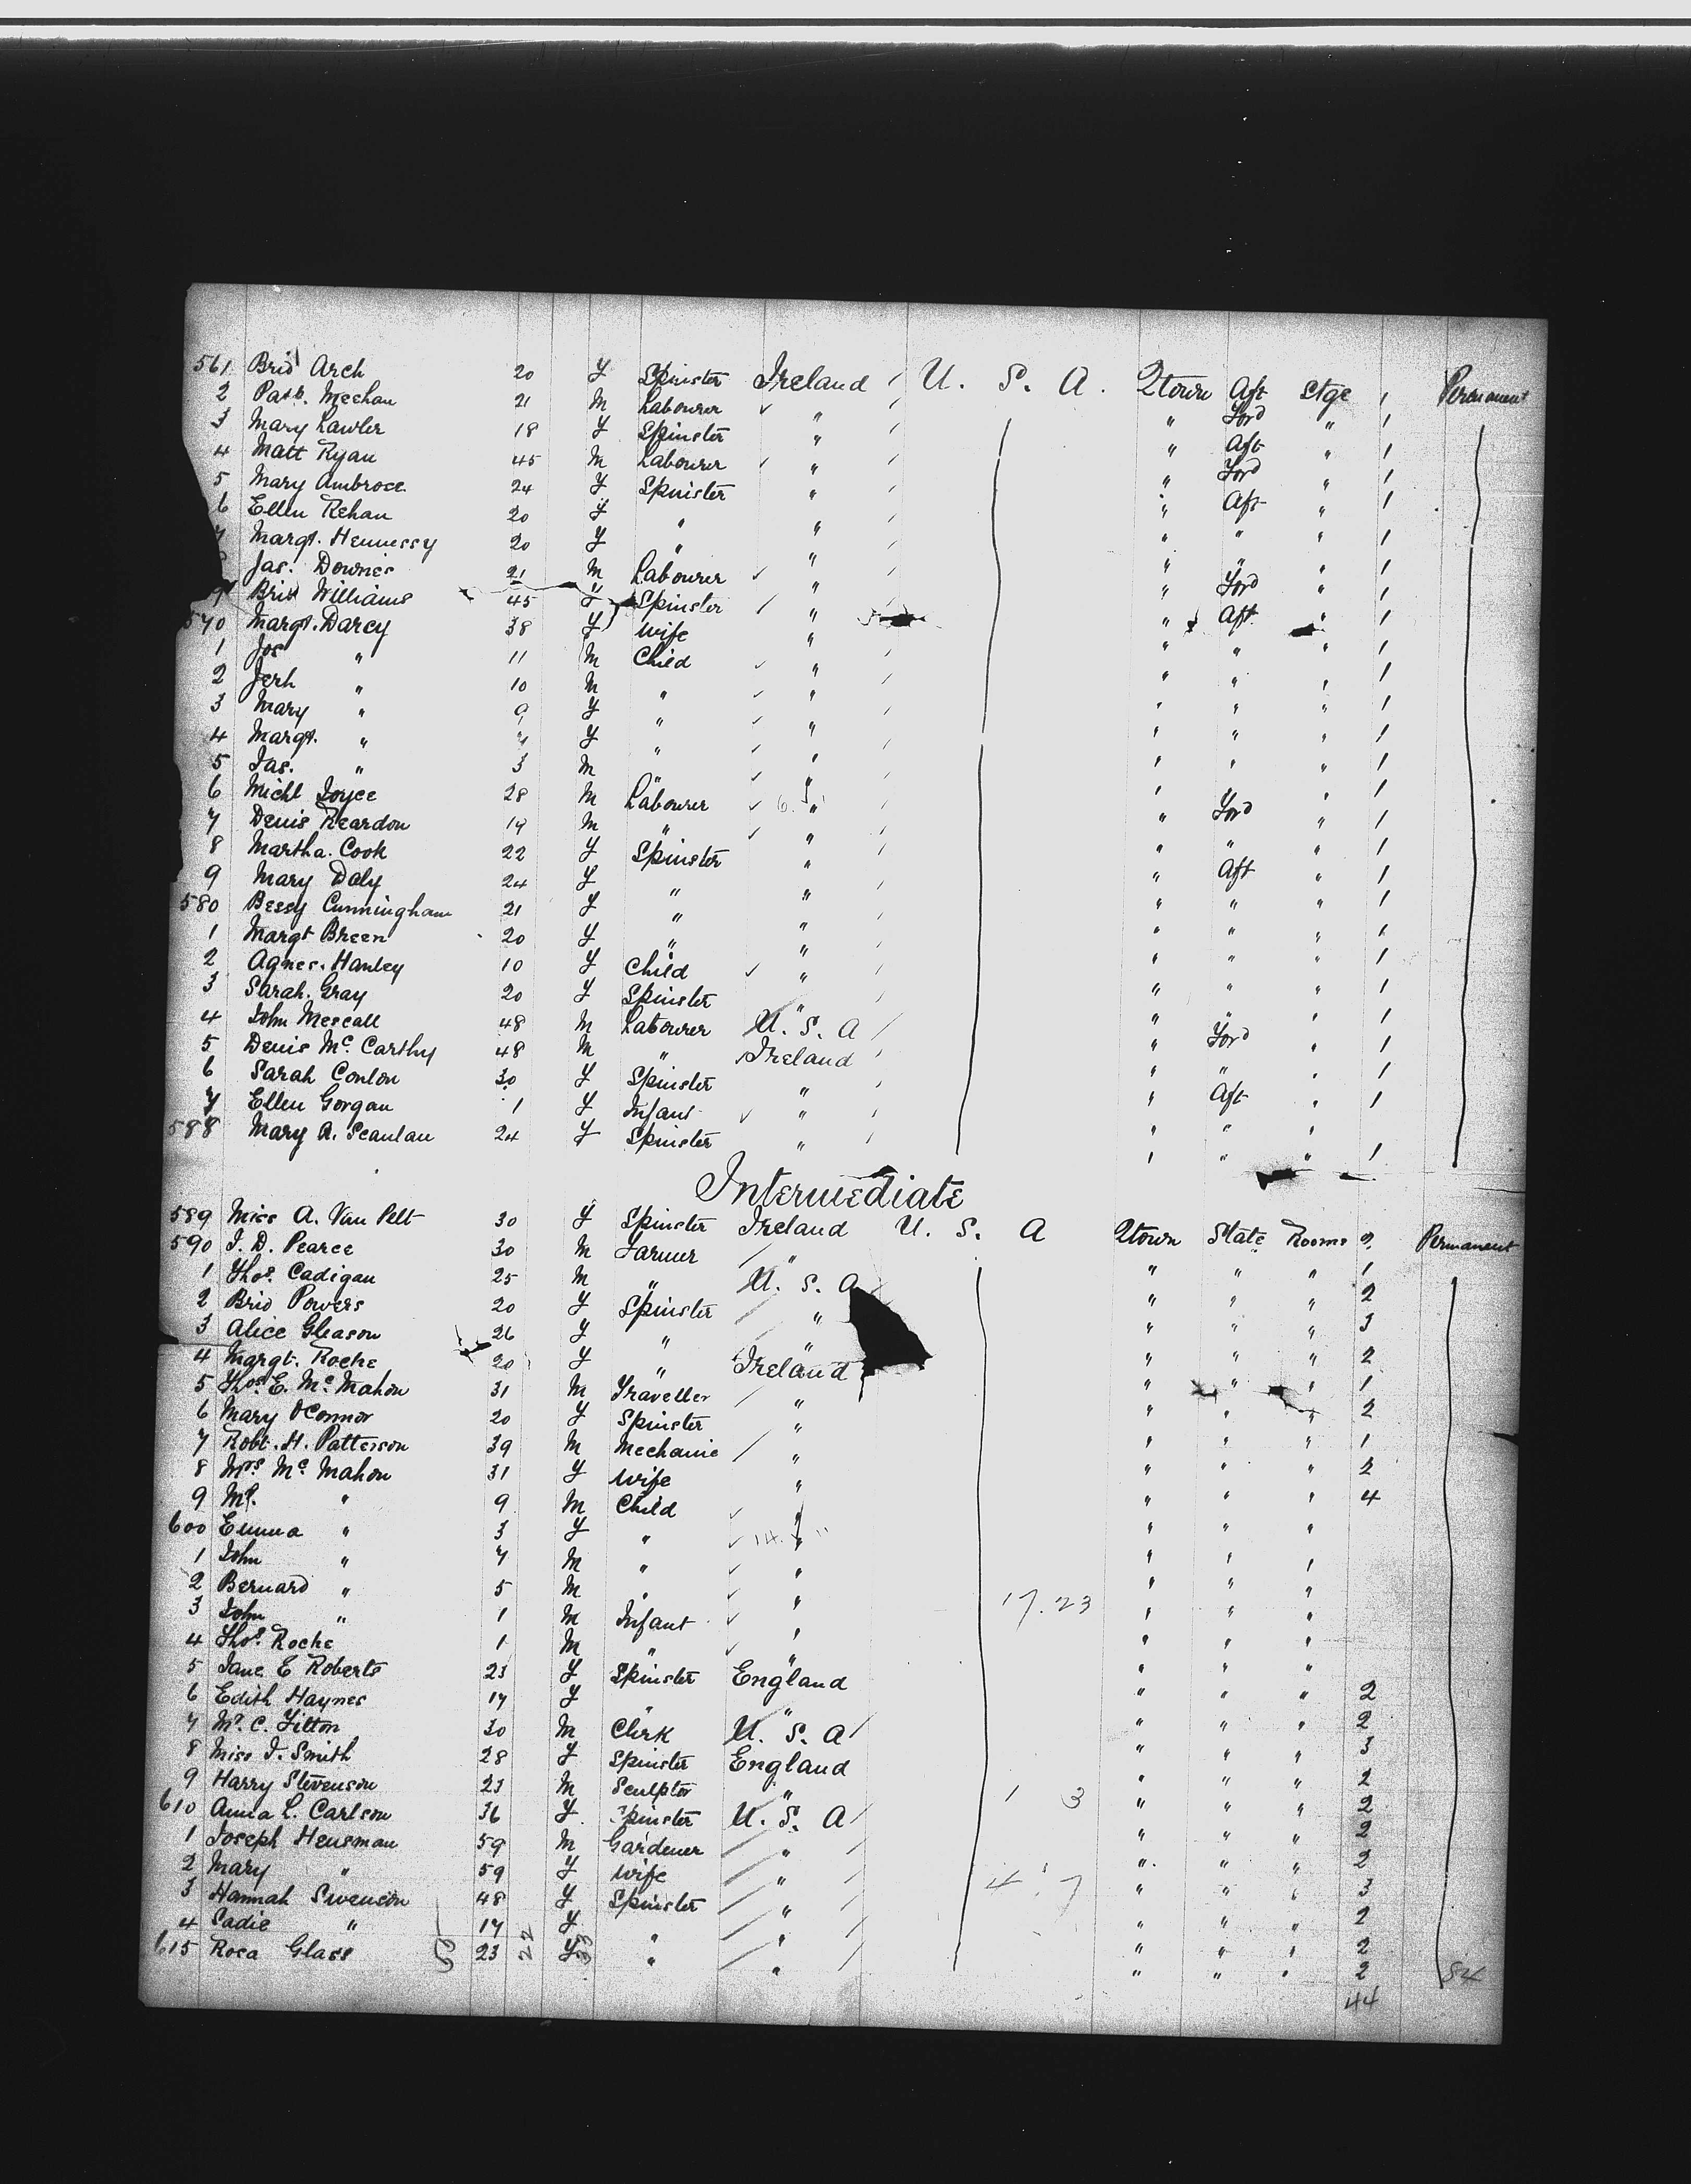 561 Brid Arch 20 F Spinster Ireland / U. S. A. Qtown Aft Stge 1 Permanent
2 Patk. Meehan 21 M Labourer ✓ " / " Ford " 1
3 Mary Lawler 18 F Spinster " / " Aft " 1
4 Matt Ryan 45 M Labourer ✓ " / " Ford " 1
5 Mary Ambrose 24 F Spinster " / " Aft " 1
6 Ellen Rehan 20 F " " / " " " 1
7 Margt. Hennessy 20 F " " / " " " 1
Jas. Downes 21 M Labourer ✓ " / " Ford " 1
9 Brid Williams 45 F Spinster / " " Aft " 1
570 Margt. Darcy 38 F Wife " / " " " 1
1 Jos " 11 M Child ✓ " / " " " 1
2 Jerh " 10 M " ✓ " / " " " 1
3 Mary " 9 F " ✓ " / " " " 1
4 Margt. " 7 F " ✓ " / " " " 1
5 Jas. " 3 M " ✓ " / " " " 1
6 Michl Joyce 28 M Labourer ✓ " / " Ford " 1
7 Denis Reardon 19 M " ✓ " / " " " 1
8 Martha. Cook 22 F Spinster " / " Aft " 1
9 Mary Daly 24 F " " / " " " 1
580 Bessy Cunningham 21 F " " / " " " 1
1 Margt Breen 20 F " " / " " " 1
2 Agnes. Hanley 10 F Child ✓ " / " " " 1
3 Sarah. Gray 20 F Spinster " / " " " 1
4 John Mescall 48 M Labourer U. S. A / " Ford " 1
5 Denis Mc. Carthy 48 M " Ireland / " " " 1
6 Sarah Conlon 30 F Spinster " / " Aft " 1
7 Ellen Gorgan 1 F Infant ✓ " / " " "
588 Mary A. Scanlan 24 F Spinster " / " " " 1
Intermediate
589 Miss A. Van Pelt 30 F Spinster Ireland U. S. A Qtown State Rooms 2 Permanent
590 J. D. Pearce 30 M Farmer / " " " " 1
1 Thos. Cadigan 25 M " U. S. A " " " 2
2 Brid Powers 20 F Spinster / " " " " 3
3 Alice Gleason 26 F " / " " " " 2
4 Margt. Roche 20 F " Ireland " " " 1
5 Thos. E. Mc Mahon 31 M Traveller / " " " " 2
6 Mary O'Connor 20 F Spinster " " " " 1
7 Robt. H. Patterson 39 M Mechanic / " " " " 2
8 Mrs Mc Mahon 31 F Wife " " " " 4
9 " 9 M Child ✓ " " " "
600 Emma " 3 F " ✓ " " " "
1 John " 7 M " ✓ " " " "
2 Bernard " 5 M " ✓ " 17. 23 " " "
3 John " 1 M Infant ✓ " " " "
4 Thos. Roche 1 M " ✓ " " " "
5 Jane E Roberts 23 F Spinster England " " " 2
6 Edith Haynes 17 F " " " " " 2
7 Mr. C. Tilton 30 M Clerk U. S. A / " " " 3
8 Miss J. Smith 28 F Spinster England " " " 2
9 Harry Stevenson 23 M Sculptor " 1 3 " " " 2
610 Anna L. Carlson 36 F Spinster U. S. A / " " " 2
1 Joseph Hensman 59 M Gardener / " / " " " 2
2 Mary " 59 F Wife / " / 4 7 " " " 3
3 Hannah Swenson 48 F Spinster / " / " " " 2
4 Sadie " 17 F " / " / " " " 2
615 Rosa Glass 23 22 F 33 " / " / " " " 2 84
44